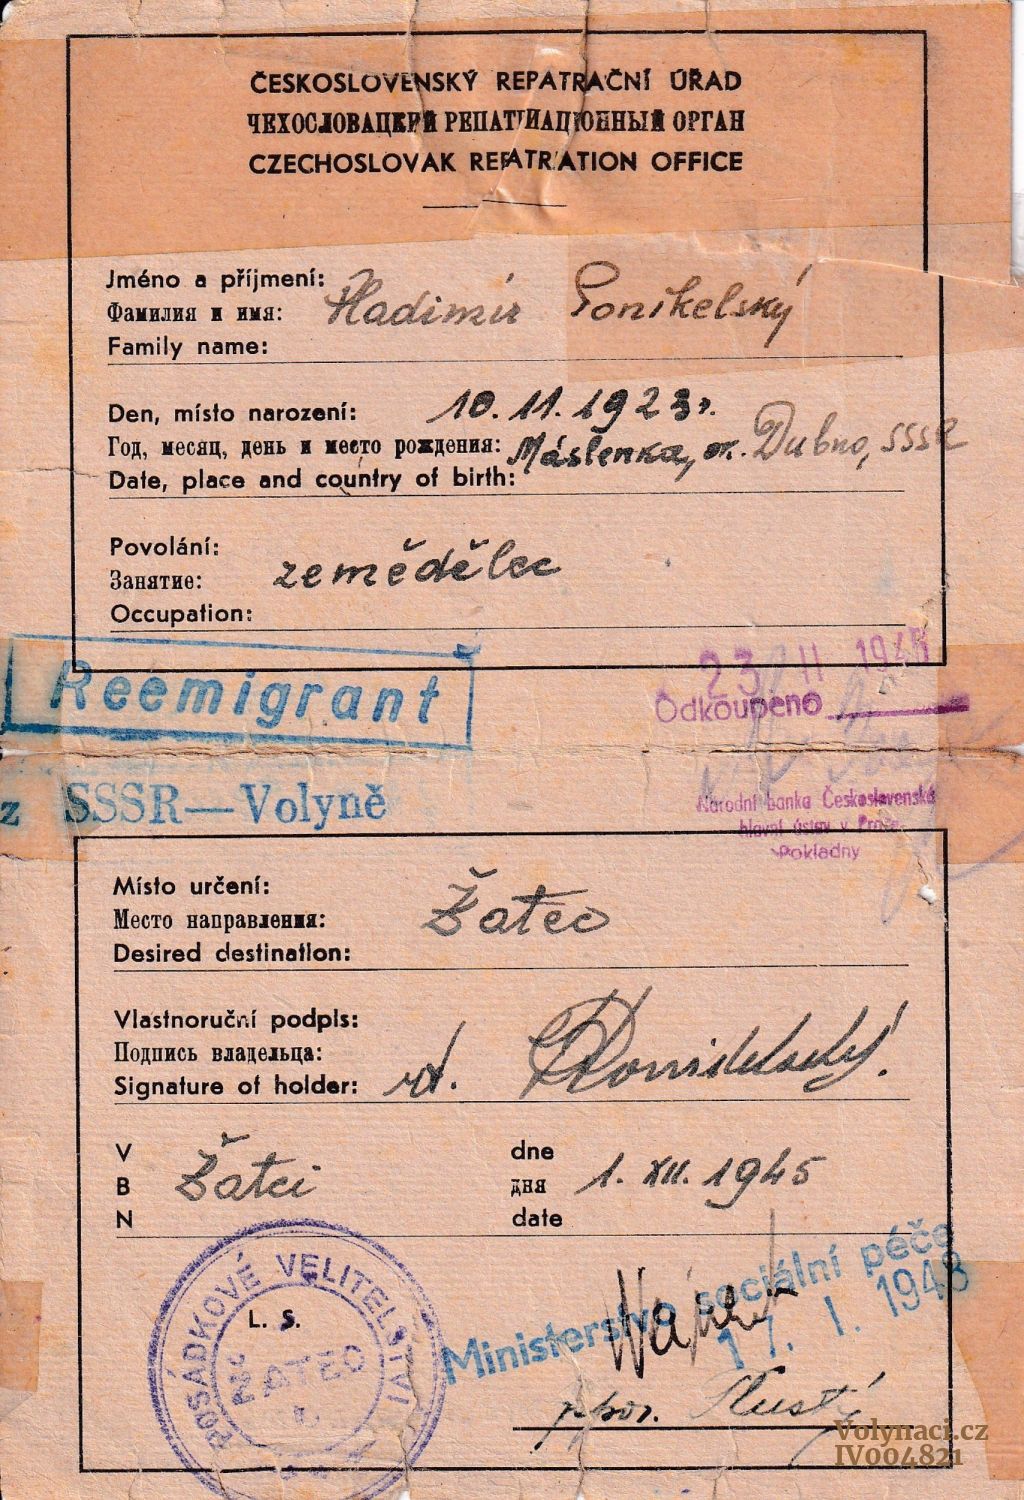 ČESKOSLOVENSKÝ REPATRAČNÍ ÚŘAD
ЧЕХОСЛОВАЦКИЙ РЕПАТРИАЦИОННЫЙ ОРГАН
CZECHOSLOVAK REPATRIATION OFFICE
Jméno a příjmení:
Фамилия и имя: Vladimír Ponikelský
Family name:
Den, místo narození: 10. 11. 1923
Год, месяц, день и место рождения: Máslenka, ok. Dubno, SSSR
Date, place and country of birth:
Povolání:
Занятие: zemědělec
Occupation:
Reemigrant
23 II 194
Odkoupeno
z SSSR — Volyně
Národní banka Československá
hlavní ústav v Praze
Pokladny
Místo určení:
Место направления: Žatec
Desired destination:
Vlastnoruční podpis:
Подпись владельца:
Signature of holder:
V dne
В Žatci дня 1. XII. 1945
N date
Ministerstvo sociální péče
17. I. 1948
POSÁDKOVÉ VELITELSTVÍ
L. S.
ŽATEC
Volynaci.cz
IV004821